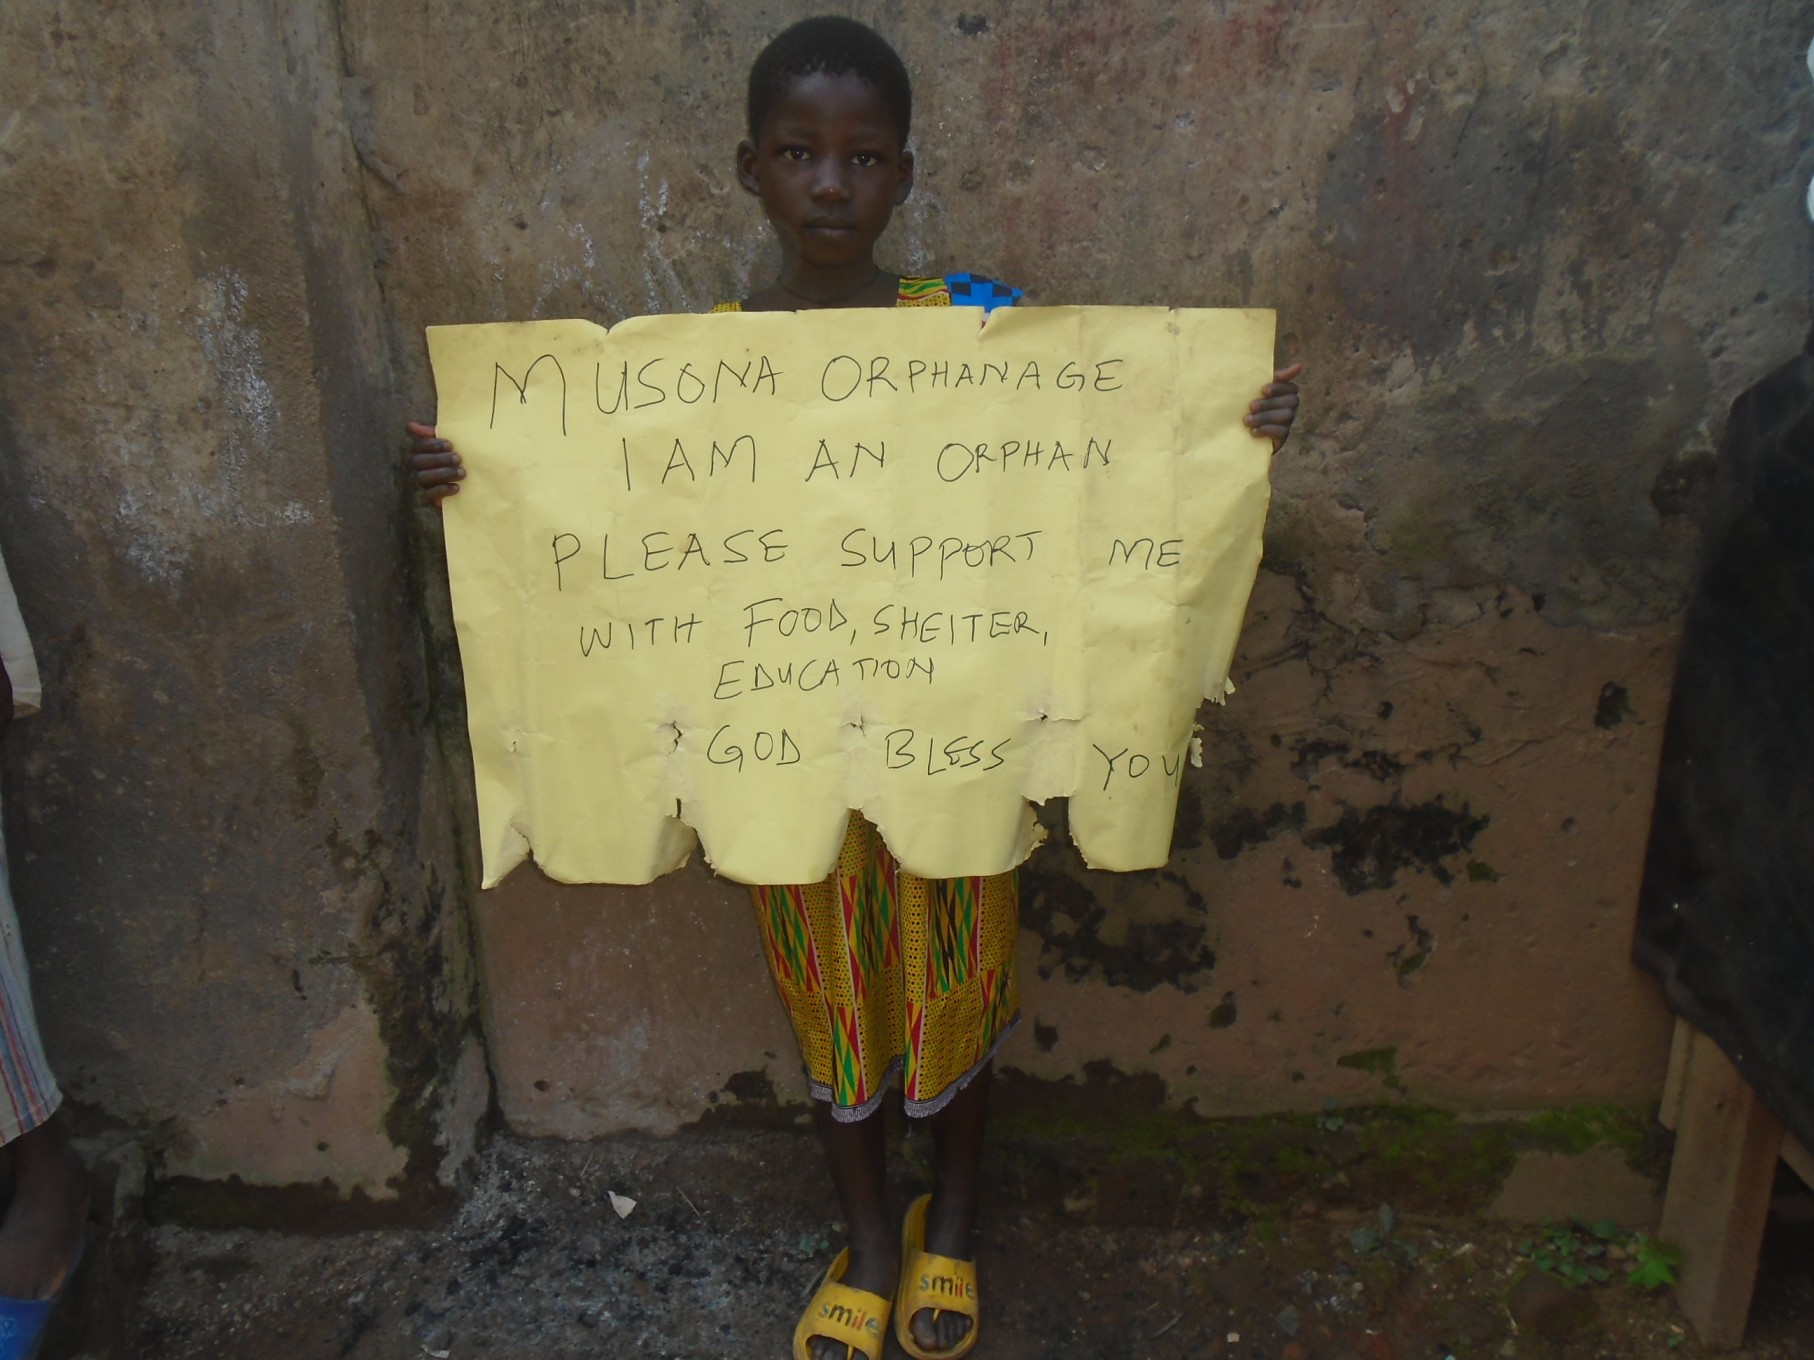 MUSONA ORPHANAGE
I AM AN ORPHAN
PLEASE SUPPORT ME
WITH FOOD, SHEITER,
EDUCATION
GOD BLESS YOU
smile
smile